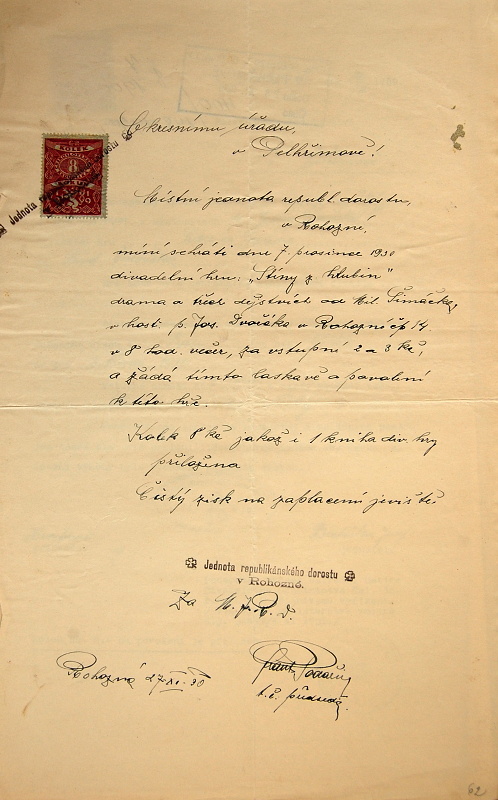 Okresnímu úřadu,
v Pelhřimově!
Jednota republikánského dorostu
KOLEK
8
Místní jednota republ. dorostu,
v Rohozné,
míní sehráti dne 7. prosince 1930
divadelní hru: „Stíny z hlubin"
drama o třech dějstvích od Mil. Šimáčka,
v host. p. Jos. Dvořáka v Rohozné čp 14
v 8 hod. večer, za vstupné 2 a 3 kč,
a žádá tímto laskavě o povolení
k této hře.
Kolek 8 kč jakož i 1 kniha div. hry
přiložena
Čistý zisk na zaplacení jeviště
Jednota republikánského dorostu
v Rohozné.
Za M. J. R. D.
Rohozná 27/XI. 30
Frant.
t. č. předseda
62